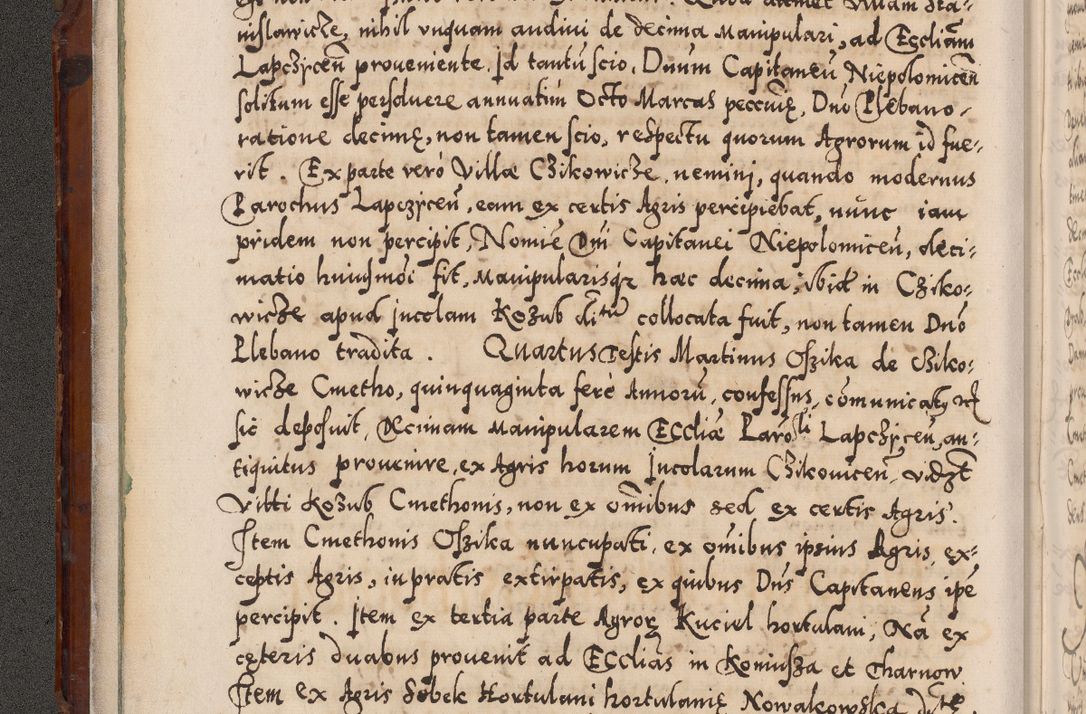 nislawicze, nihil vnquam audiui de decima Manipulari, ad Eccliam
Lapczyceñ proueniente. Id tantũ scio, Dnum Capitaneũ Niepolomiceñ
solitum esse persoluere annuatim Octo Marcas peccunię, Dno Plebano
ratione decimę, non tamen scio, respectu quorum Agrorum id fue-
rit. Ex parte verò Villæ Czikowicze, nemini, quando modernus
Parochus Lapczyceñ, eam ex certis Agris percipiebat, nunc iam
pridem non percipit, Nomĩe Dñi Capitanei Niepolomiceñ, deci-
matio huiusmõi fit, Manipularisq₃ hæc decima, ibidẽ in Cziko-
wicze apud Incolam Kozub di͠tũ collocata fuit, non tamen Dno
Plebano tradita. Quartus Testis Martinus Oszika de Cziko-
wicze Cmetho, quinquaginta ferè Annorũ, confessus, cõmunicatq₃ et
sic deposuit, Decimam Manipularem Eccliæ Parõli Lapczyceñ, an-
tiquitus prouenire, ex Agris horum Incolarum Czikouiceñ, vidzt
Vitti Kozub Cmethonis, non ex oĩbus sed ex certis Agris.
Item Cmethonis Oszika nuncupati, ex omibus ipsius Agris, ex-
ceptis Agris, in pratis extirpatis, ex quibus Dñs Capitaneus ipẽ
percipit. Item ex tertia parte Agroꝝ Kuciel hortulani, Nã ex
cęteris duabus prouenit ad Ecclias in Koniusza et Tharnow
Item ex Agris Sobek Hortulani hortulanię Nowakowska